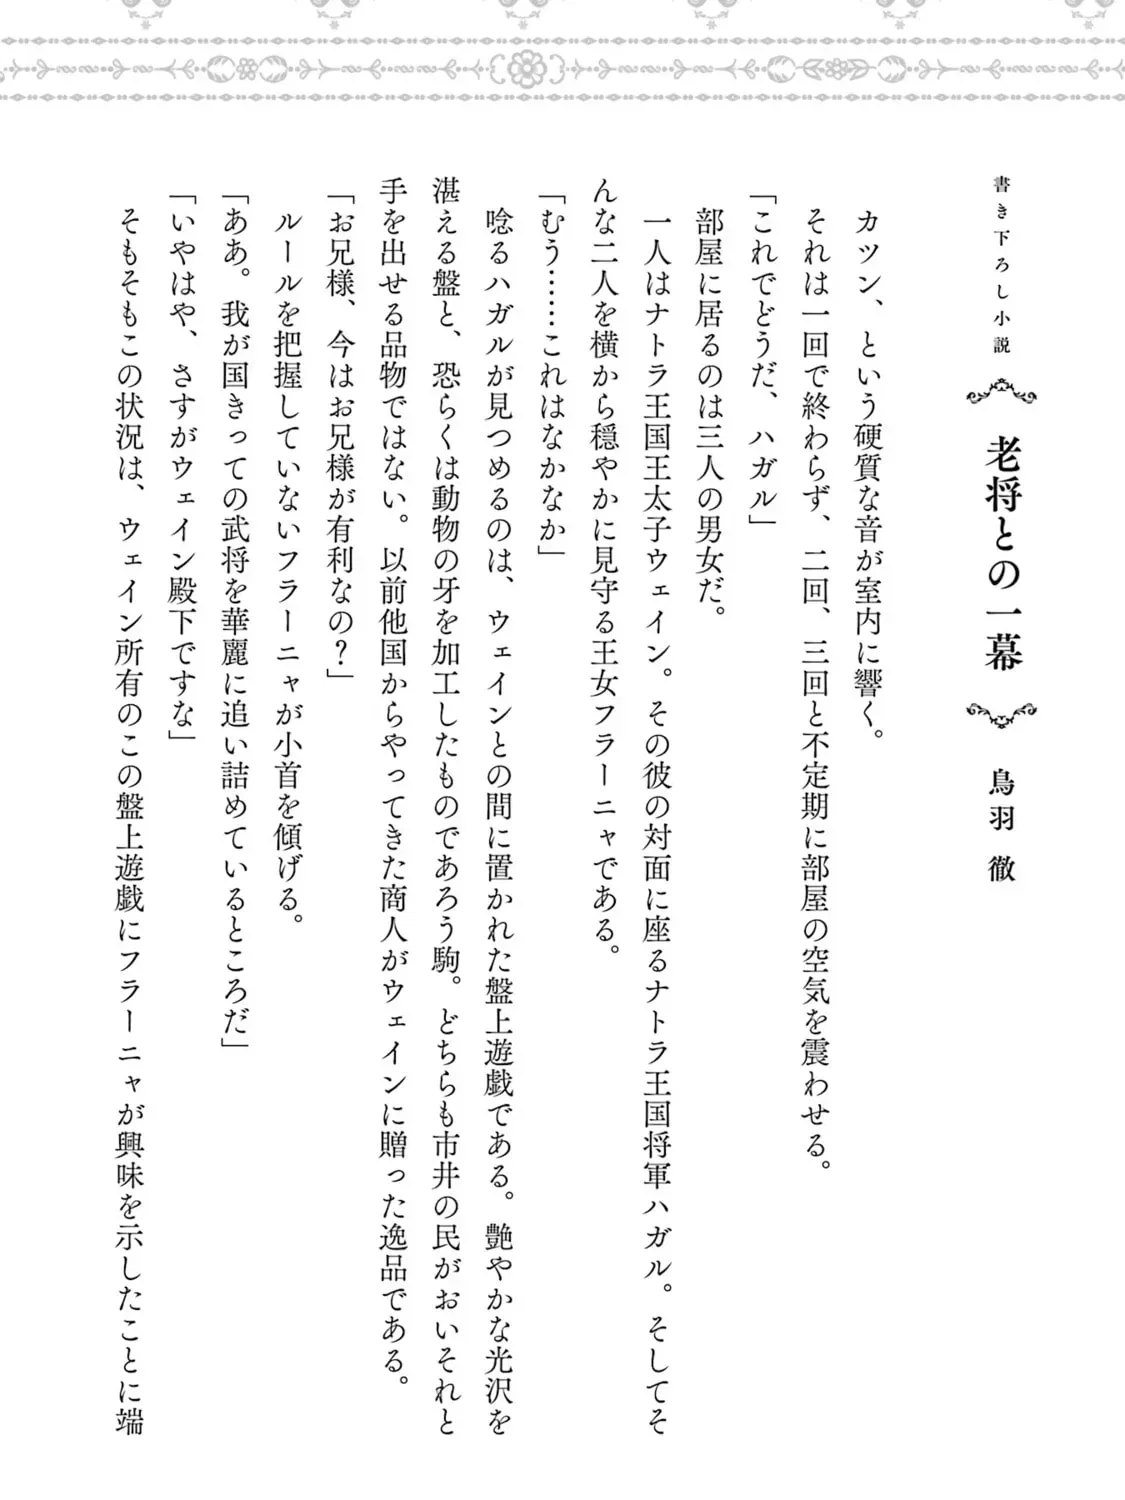 書き下ろし小説
老将との一幕
鳥羽 徹
カツン、という硬質な音が室内に響く。
それは一回で終わらず、二回、三回と不定期に部屋の空気を震わせる。
「これでどうだ、ハガル」
部屋に居るのは三人の男女だ。
一人はナトラ王国王太子ウェイン。その彼の対面に座るナトラ王国将軍ハガル。そしてそ
んな二人を横から穏やかに見守る王女フラーニャである。
「むう……これはなかなか」
唸るハガルが見つめるのは、ウェインとの間に置かれた盤上遊戯である。艶やかな光沢を
湛える盤と、恐らくは動物の牙を加工したものであろう駒。どちらも市井の民がおいそれと
手を出せる品物ではない。以前他国からやってきた商人がウェインに贈った逸品である。
「お兄様、今はお兄様が有利なの？」
ルールを把握していないフラーニャが小首を傾げる。
「ああ。我が国きっての武将を華麗に追い詰めているところだ」
「いやはや、さすがウェイン殿下ですな」
そもそもこの状況は、ウェイン所有のこの盤上遊戯にフラーニャが興味を示したことに端